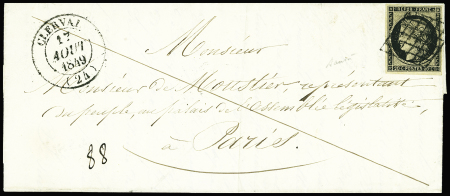 CLERVAL
17
AOUT
1849
(24)
REPUB. FRANC.
Monsieur
Monsieur de Moustier, représentant
du peuple, au palais de l'assemblée législative,
à Paris.
88